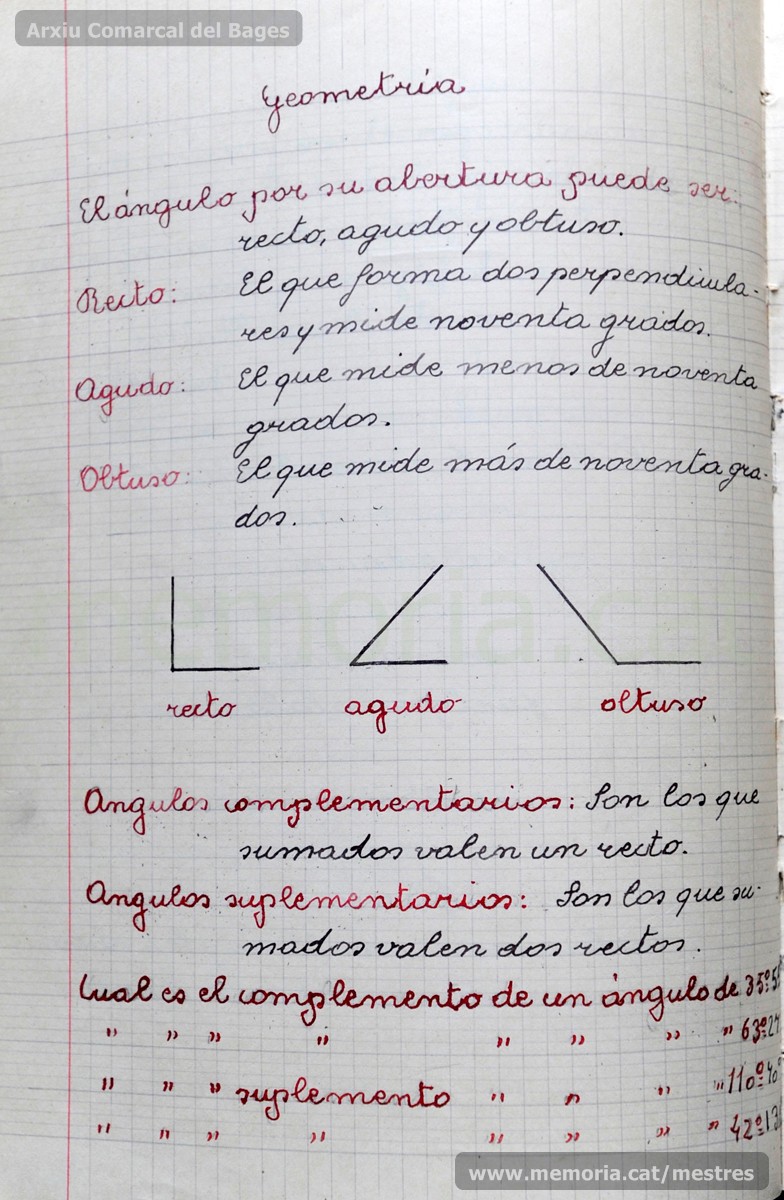 Arxiu Comarcal del Bages
Geometría
El ángulo por su abertura puede ser:
recto, agudo y obtuso.
Recto: El que forma dos perpendicula-
res y mide noventa grados.
Agudo: El que mide menos de noventa
grados.
Obtuso: El que mide más de noventa gra-
dos.
memoria.cat
recto agudo obtuso
Angulos complementarios: Son los que
sumados valen un recto.
Angulos suplementarios: Son los que su-
mados valen dos rectos.
Cual es el complemento de un ángulo de 35º
" " " " " " " " 63º
" " " suplemento " " " " 110º
" " " " " " " " 42º
www.memoria.cat/mestres